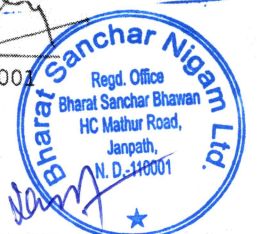 001
Bharat Sanchar Nigam Ltd.
Regd. Office
Bharat Sanchar Bhawan
HC Mathur Road,
Janpath,
N. D.-110001